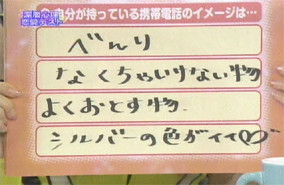 深層心理
恋愛テスト
自分が持っている携帯電話のイメージは…
べんり
なくちゃいけない物
よくおとす物.
シルバーの色がイイ♡